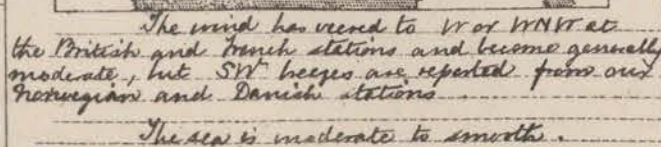 The wind has veered to W or WNW at
the British and French stations and become generally
moderate, but SW breezes are reported from our
Norwegian and Danish stations.
The sea is moderate to smooth.